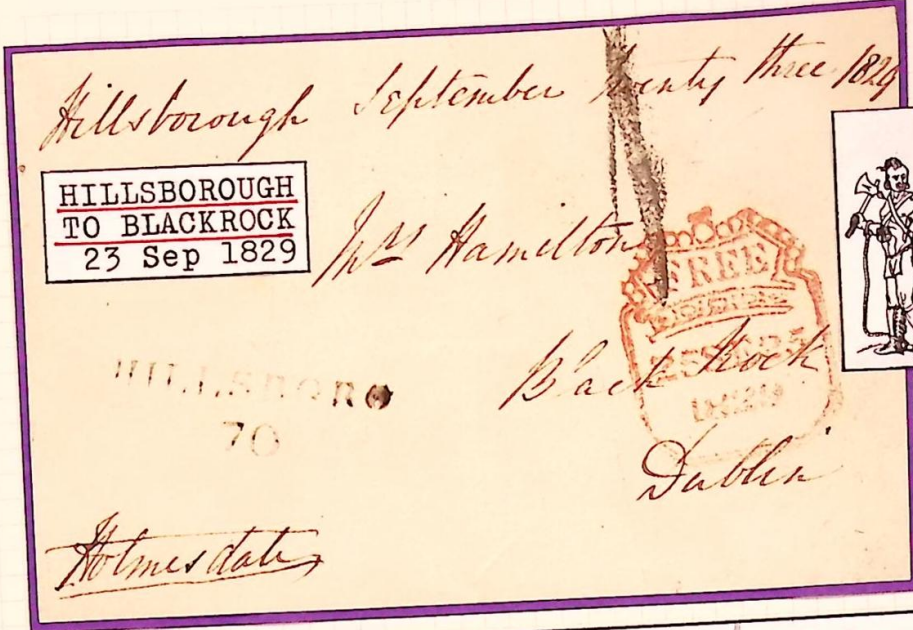 Hillsborough September twenty three 1829
HILLSBOROUGH
TO BLACKROCK
23 Sep 1829
Mrs Hamilton
FREE
25 SE 25
1829
Black Rock
HILLSBORO
70
Dublin
Holmesdale